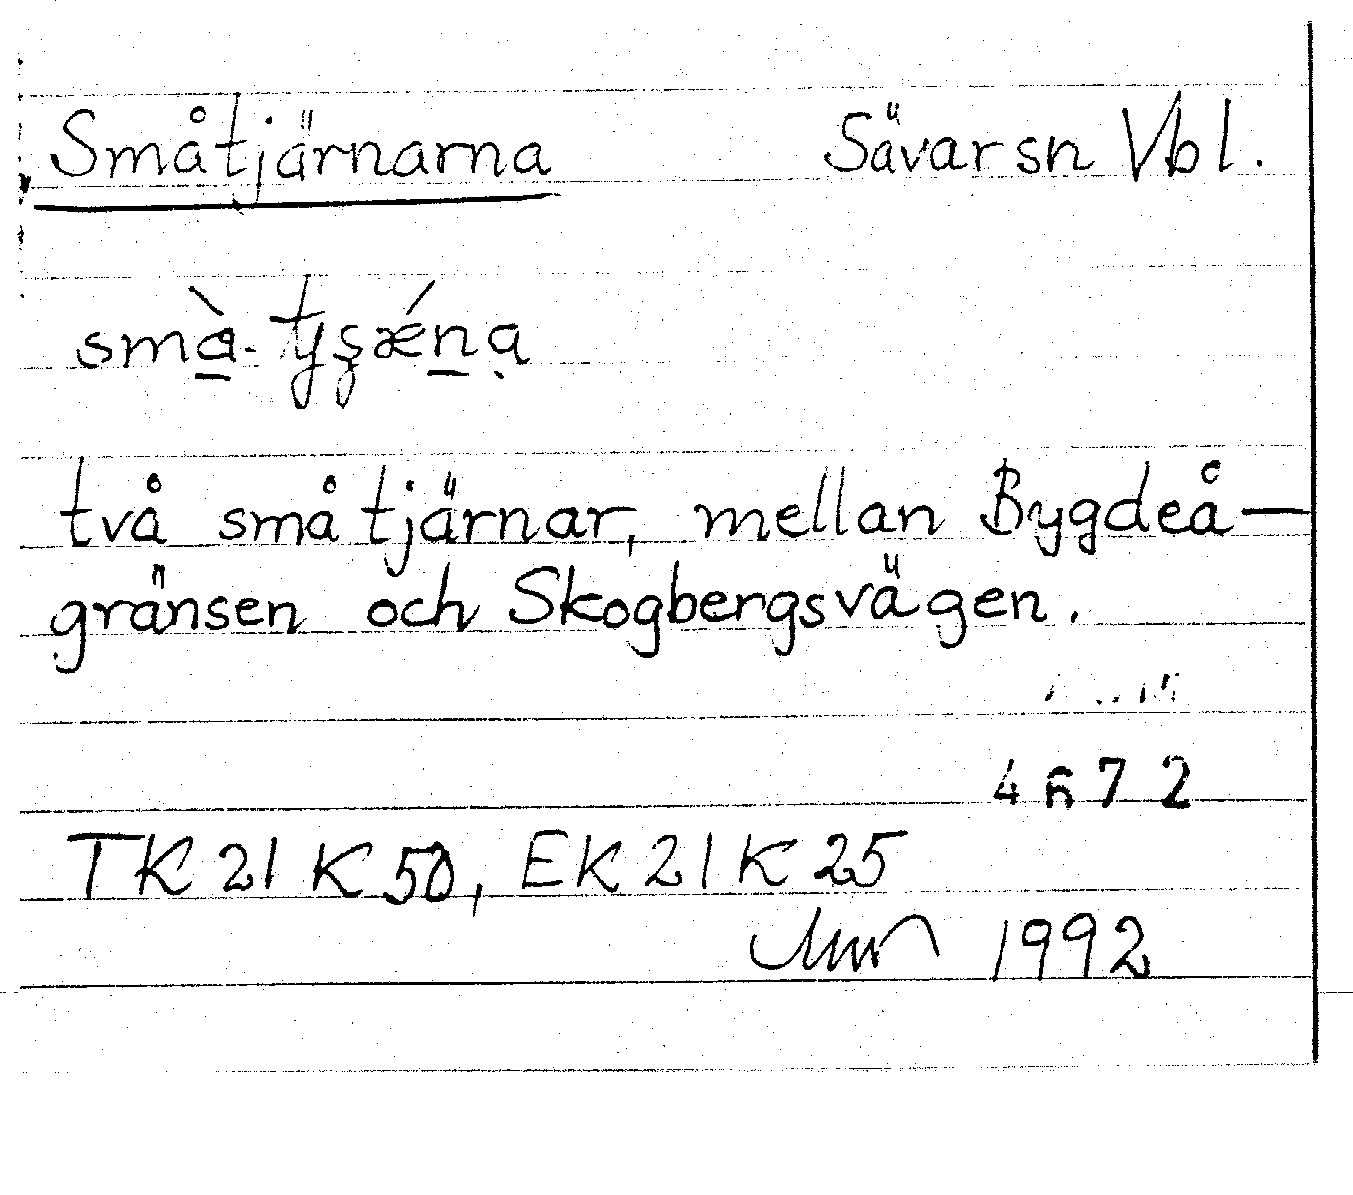 Småtjärnarna Sävar sn Vbl.
små̀-tjʂǽnạ
två små tjärnar, mellan Bygdeå-
gränsen och Skogbergsvägen.
4672
TK 21 K 50, EK 21 K 25
1992